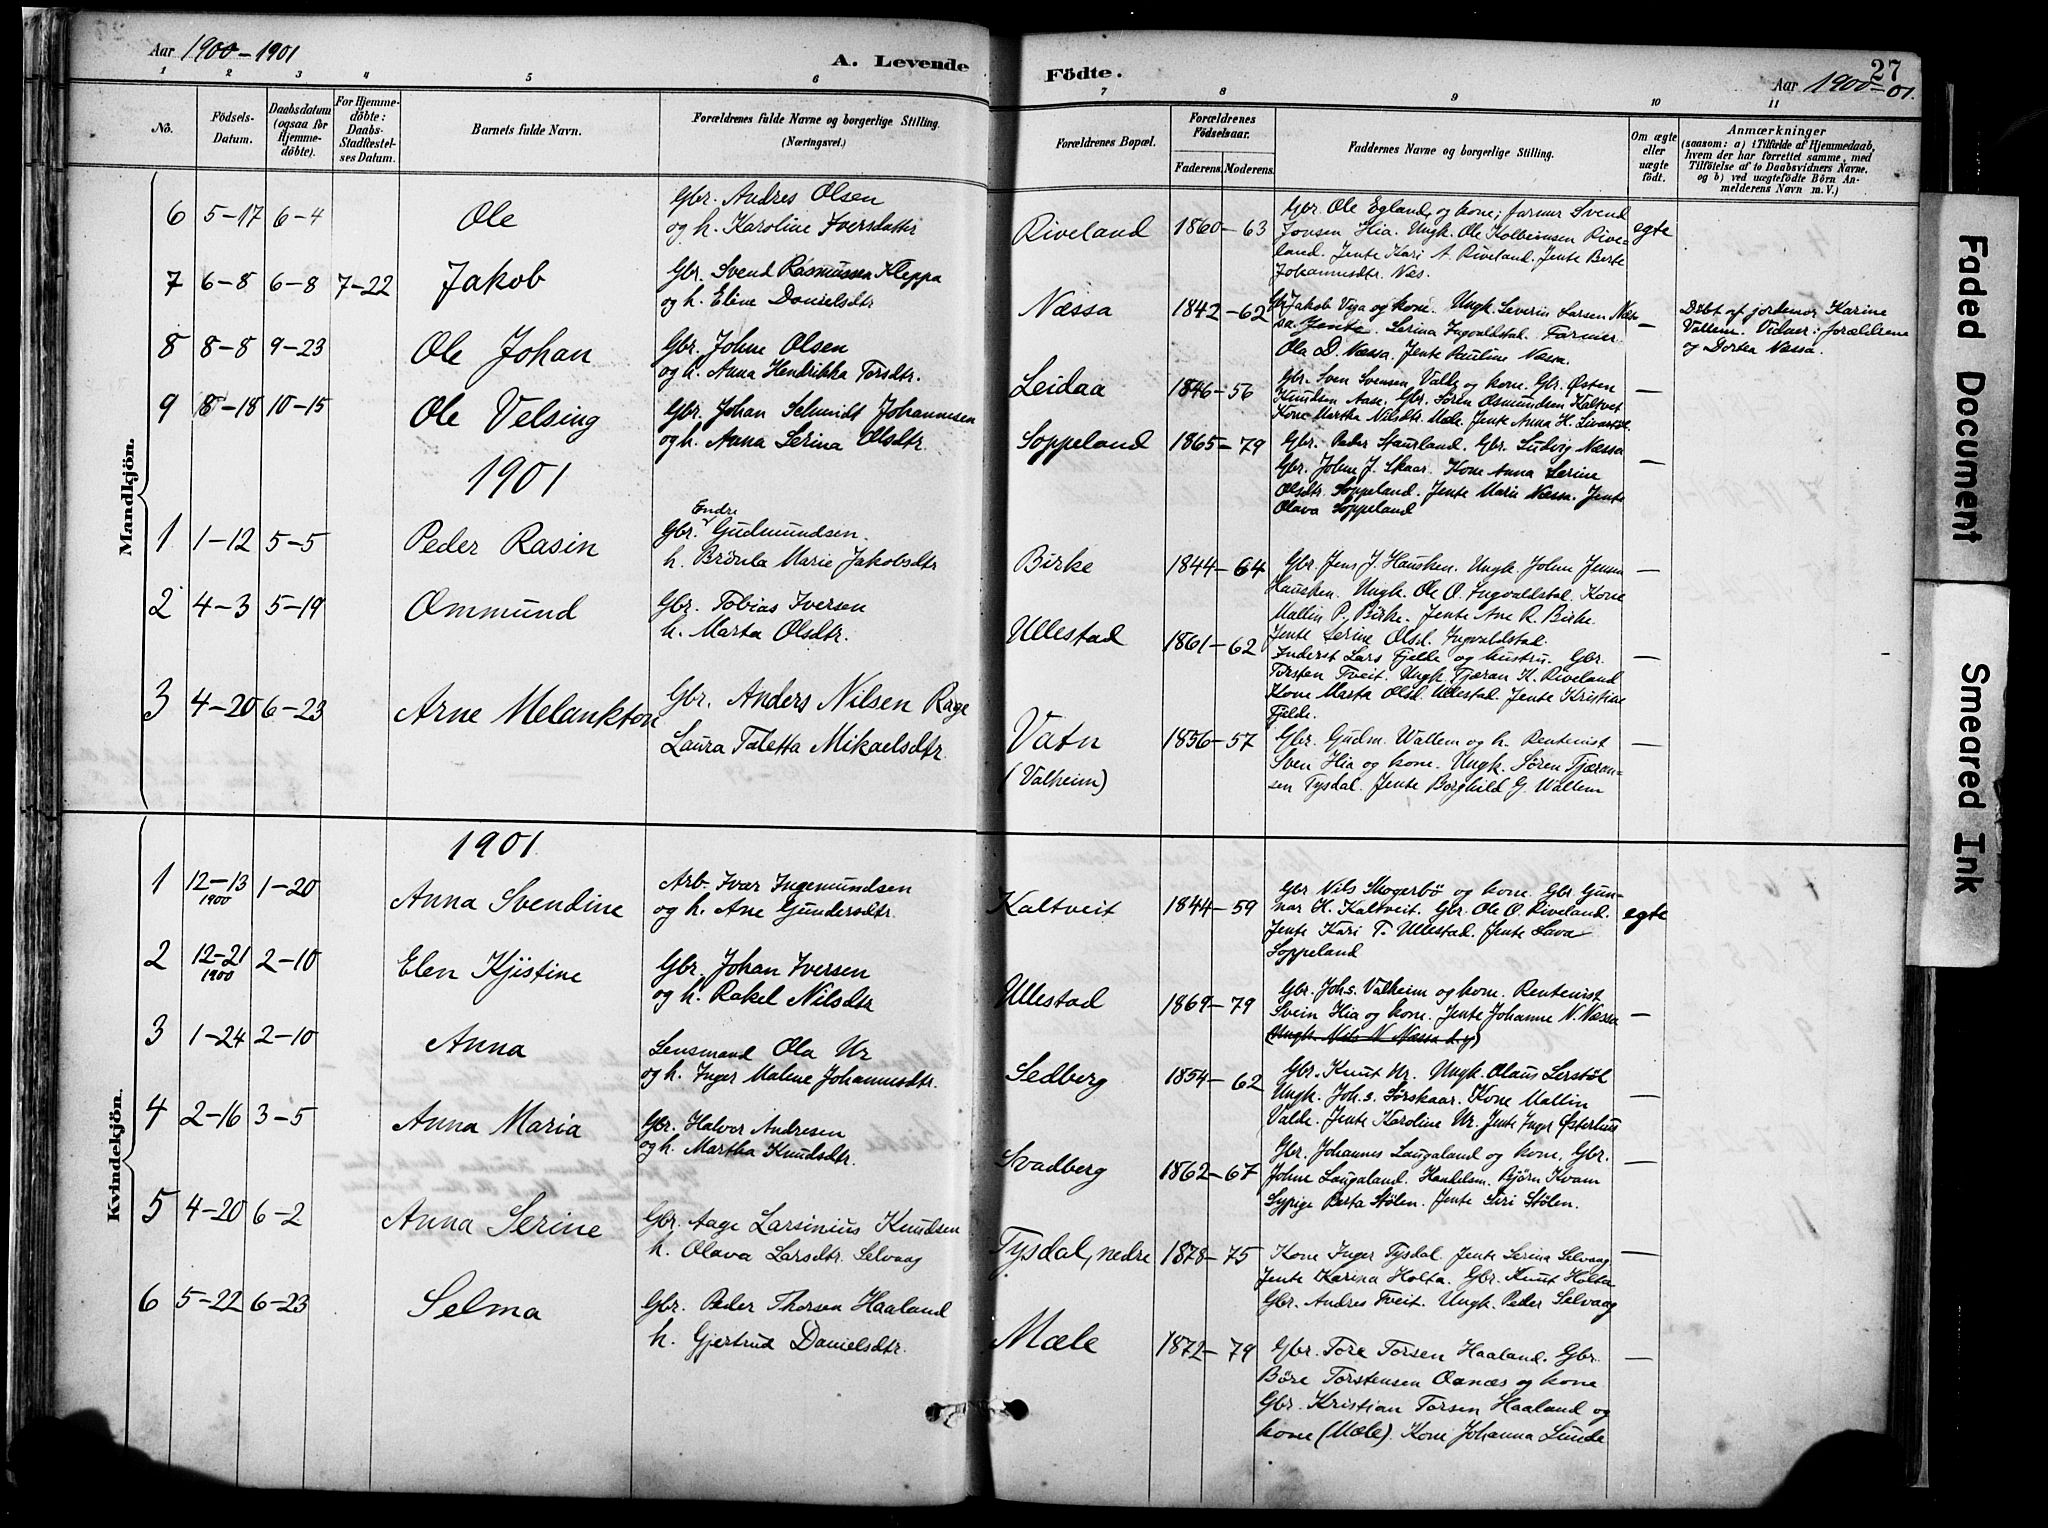 Aar 1900-1901
A. Levende
1 2 3 4 5 6
No.
Födsels-Datum.
Daabsdatum (ogsaa for Hjemme-döbte).
For Hjemme-döbte: Daabs-Stadfæstel-ses Datum.
Barnets fulde Navn.
Forældrenes fulde Navne og borgerlige Stilling. (Næringsvei.)
Mandkjön.
6 5-17 6-4 Ole Gbr. Andres Olsen
og h. Karoline Iversdatter
7 6-8 6-8 7-22 Jakob Gbr. Svend Rasmussen Kleppa
og h. Eline Danielsdtr
8 8-8 9-23 Ole Johan Gbr. Johne Olsen
og h. Anna Hendrikka Torsdtr.
9 8-18 10-15 Ole Velsing Gbr. Johan Schmidt Johannesen
og h. Anna Serina Olsdtr.
1901
1 1-12 5-5 Peder Rasin Gbr. Endre Gudmundsen.
h. Brönla Marie Jakobsdtr
2 4-3 5-19 Ommund Gbr. Tobias Iversen
h. Marta Olsdtr.
3 4-20 6-23 Arne Melankton Gbr. Anders Nilsen Rage
Laura Taletta Mikaelsdtr.
Kvindekjön.
1901
1 12-13 1900 1-20 Anna Svendine Arb. Ivar Ingemundsen
og h. Ane Gundersdtr.
2 12-21 1900 2-10 Elen Kjistine Gbr. Johan Iversen
og h. Rakel Nilsdtr
3 1-24 2-10 Anna Lensmand Ola Ur
og h. Inger Malene Johannesdtr.
4 2-16 3-5 Anna Maria Gbr. Halvor Andresen
og h. Martha Knudsdtr.
5 4-20 6-2 Anna Serine Gbr. Aage Larsinius Knudsen
h. Olava Larsdtr. Selvaag
6 5-22 6-23 Selma Gbr. Peder Thorsen Haaland
h. Gjertrud Danielsdtr.
Födte.
27
Aar 1900-01.
7 8 9 10 11
Forældrenes Bopæl.
Forældrenes Födselsaar.
Faderens. Moderens.
Faddernes Navne og borgerlige Stilling.
Om ægte eller uægte födt.
Anmærkninger
(saasom: a) i Tilfælde af Hjemmedaab,
hvem der har forrettet samme, med
Tilföielse af to Daabsvidners Navne,
og b) ved uægtefödte Börn An-
melderens Navn m. V.)
Riveland 1860-63 Gbr. Ole Egland og kone; farmer Svend egte
Jonsen Hia. Ungk. Ole Kolbeinsen Rive-
land. Jente Kari A. Riveland. Jente Berte
Johannesdtr. Næs.
Næssa 1842-62 Gbr Jakob Viga og kone. Ungk. Severin Larsen Næs- — Döbt af jordemor Karine
sa. Jente Serina Ingvaldstad. Farmer Vallem. Vidner: forældrene
Ola D. Næssa. Jente Pauline Næssa. og Dortea Næssa.
Leidaa 1846-56 Gbr. Sven Svensen, Valle og kone. Gbr. Østen —
Knudsen Aase. Gbr. Sören Osmundsen Kaltveit
Kone Martha Nilsdtr. Mæle. Jente Anna H.
Soppeland 1865-79 Gbr. Peder Staurland. Gbr. Ludvig Næssa —
Gbr. Johne J. Skaar. Kone Anna Serine
Olsdtr. Soppeland. Jente Marie Næssa. Jente
Olava Soppeland
Birke 1844-64 Gbr. Jens J. Hausken. Ungk. Johne Jensen —
Hausken. Ungk. Ole O. Ingvaldstad. Kone
Mallin P. Birke. Jente Ane R. Birke.
Jente Serine Olsd. Ingvaldstad
Ullestad 1861-62 Inderst Lars Fjelde og hustru. Gbr. —
Torsten Tveit. Ungk. Tjæran K. Riveland
Kone Marta Olsd. Ullestad. Jente Kristine
Fjelde.
Vatn 1856-57 Gbr. Gudm. Wallem og h. Rentenist —
(Valheim) Sven Hia og kone. Ungk. Sören Tjæran-
sen Tysdal. Jente Borghild G. Wallem
Kaltveit 1844-59 Gbr Nils Mogerbö og kone. Gbr Gun- egte
nar H. Kaltveit. Gbr. Ole O. Riveland.
Jente Kari T. Ullestad. Jente Lava
Soppeland
Ullestad 1869-79 Gbr. Johs. Valheim og kone. Rentenist —
Svein Hia og kone. Jente Johanne N. Næssa
(Ungk. Nils N Næssa
Sedberg 1854-62 Gbr. Knut Ur. Ungk. Olaus Lerstöl —
Ungk. Johs. Sörskaar. Kone Mallin
Valde. Jente Karoline Ur. Jente Inger Østerhus
Svadberg 1862-67 Gbr. Johannes Laugaland og kone. Gbr. —
Johne Laugaland. Handelsm. Björn Kvam
Sypige Berta Stölen. Jente Siri Stölen.
Tysdal, nedre 1878-75 Kone Inger Tysdal. Jente Serina Selvaag —
Jente Karina Holta. Gbr. Knut Holta
Gbr. Andres Tveit. Ungk. Peder Selvaag
Mæle 1872-79 Gbr. Tore Torsen Haaland. Gbr. —
Böre Torstensen Oanæs og kone
Gbr. Kristian Torsen Haaland og
kone (Mæle). Kone Johanna Lunde
Faded Document
Smeared Ink